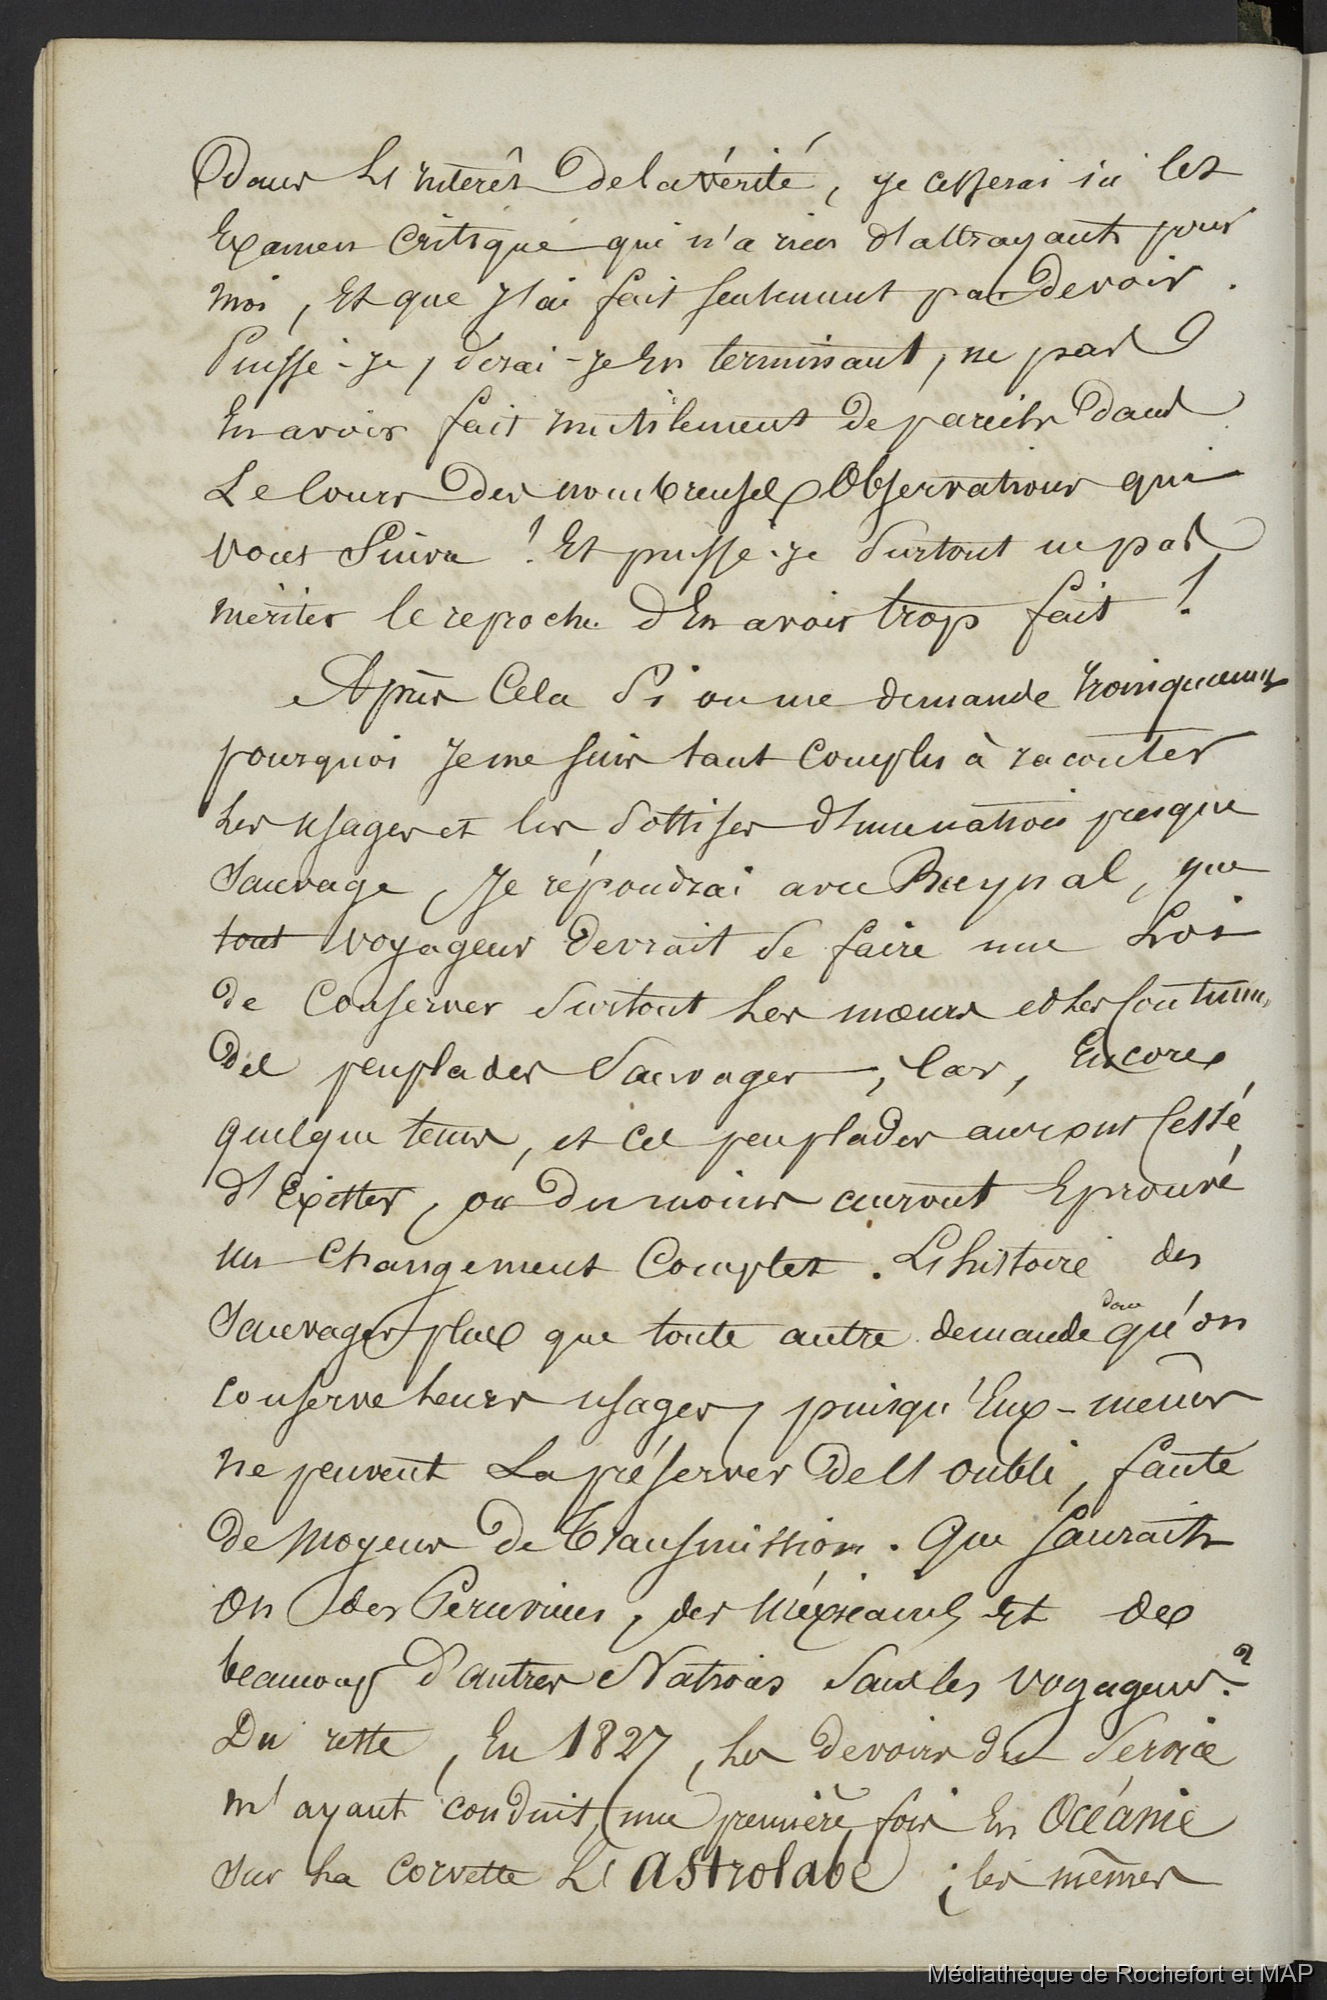 Dans L'intérêt de la vérité, je cesserai ici cet
Examen critique qui n'a rien d'attrayant pour
moi, Et que J'ai fait seulement par Devoir.
Puissé-Je, dirai-Je En terminant, ne pas
En avoir fait inutilement de pareils dans
Le Cours des nombreuses Observations qui
vont Suivre ! Et puissé-je Surtout ne pas
mériter le reproche d'En avoir trop fait !
Après Cela Si on me demande Ironiquement
pourquoi Je me suis tant Complu à raconter
Les usages et les Sottises d'une nation presque
Sauvage, Je répondrai avec Raynal, que
tout voyageur devrait se faire une Loi
de Conserver Surtout Les mœurs et Les Coutumes
des peuplades Sauvages, Car, Encore
quelque tems, et ces peuplades auront Cessé
d'Exister, ou Du moins auront Eprouvé
un Changement Complet. L'histoire des
Sauvages plus que toute autre demande donc qu'on
conserve Leurs usages, puisqu'Eux-mêmes
ne peuvent La préserver de l'oubli, faute
de Moyens de Transmission. Que Saurait
On des Péruviens, des Méxicains Et de
beaucoup d'autres Nations Sans les Voyageurs ?
Du reste, En 1827, Les devoirs du Service
m'ayant conduit, une première fois En Océanie
Sur La Corvette L'Astrolabe ; les mêmes
Médiathèque de Rochefort et MAP